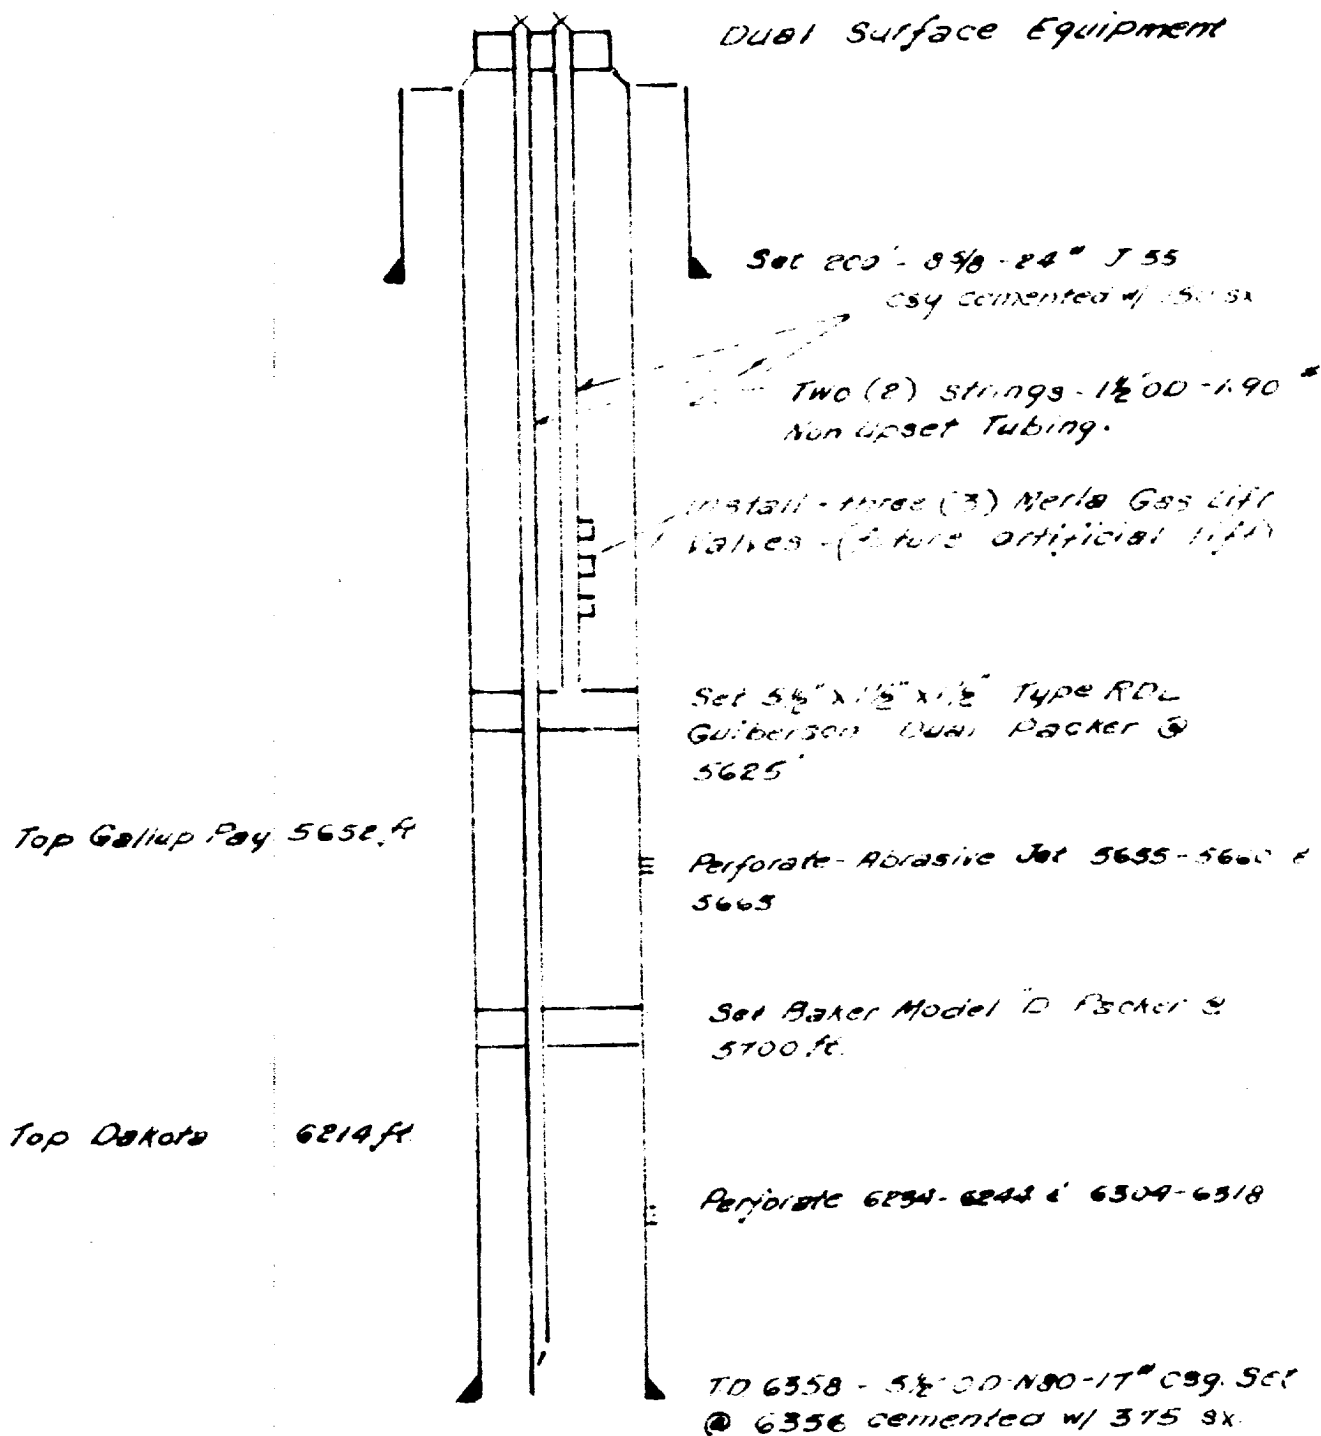 Dual Surface Equipment
Set 200' - 8 5/8 - 24# J 55
csg cemented w/ 150 sx
Two (2) Strings - 1½" OD - 1.90 "
Non Upset Tubing.
Install - three (3) Merla Gas Lift
Valves - (future artificial lift)
Set 5½" x 1½" x 1½" Type RDL
Guiberson Dual Packer @
5625'
Top Gallup Pay 5652 ft
Perforate - Abrasive Jet 5655 - 5660 &
5665
Set Baker Model "D Packer @
5700 ft.
Top Dakota 6214 ft
Perforate 6234 - 6244 & 6304 - 6318
TD 6358 - 5½" OD - N80 - 17# Csg. Set
@ 6356 cemented w/ 375 sx.